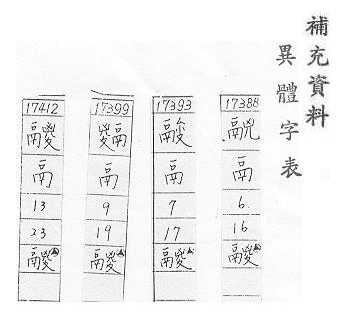 補充資料
異體字表
17388
鬲
6
16
鬷
17393
鬲
7
17
鬷
17399
鬲
9
19
鬷
17412
鬲
13
23
鬷